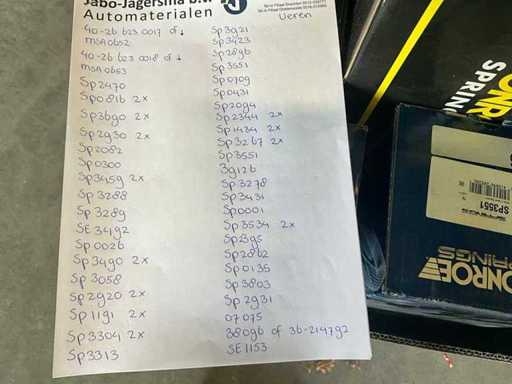 Jabo-Jagersma b.v.
Automaterialen
Veren
40-26 623 0017 of ↓
MSA 0652
40-26 623 0018 of ↓
MSA 0663
Sp2470
Sp0816 2x
Sp3690 2x
Sp2930 2x
Sp2082
Sp0300
Sp3459 2x
Sp3288
Sp3289
SE3492
Sp0026
Sp3490 2x
Sp3058
Sp2920 2x
Sp1191 2x
Sp3304 2x
Sp3313
Sp3921
Sp3423
Sp2896
Sp3551
Sp0709
Sp0431
Sp2094
Sp2344 2x
Sp1434 2x
Sp3267 2x
Sp3551
3912b
Sp3278
Sp3431
Sp0001
Sp3534 2x
Sp2862
Sp0135
Sp3803
Sp2931
07075
38096 of 36-214792
SE1153
SPRING
SP3551
ONROE
RINGS